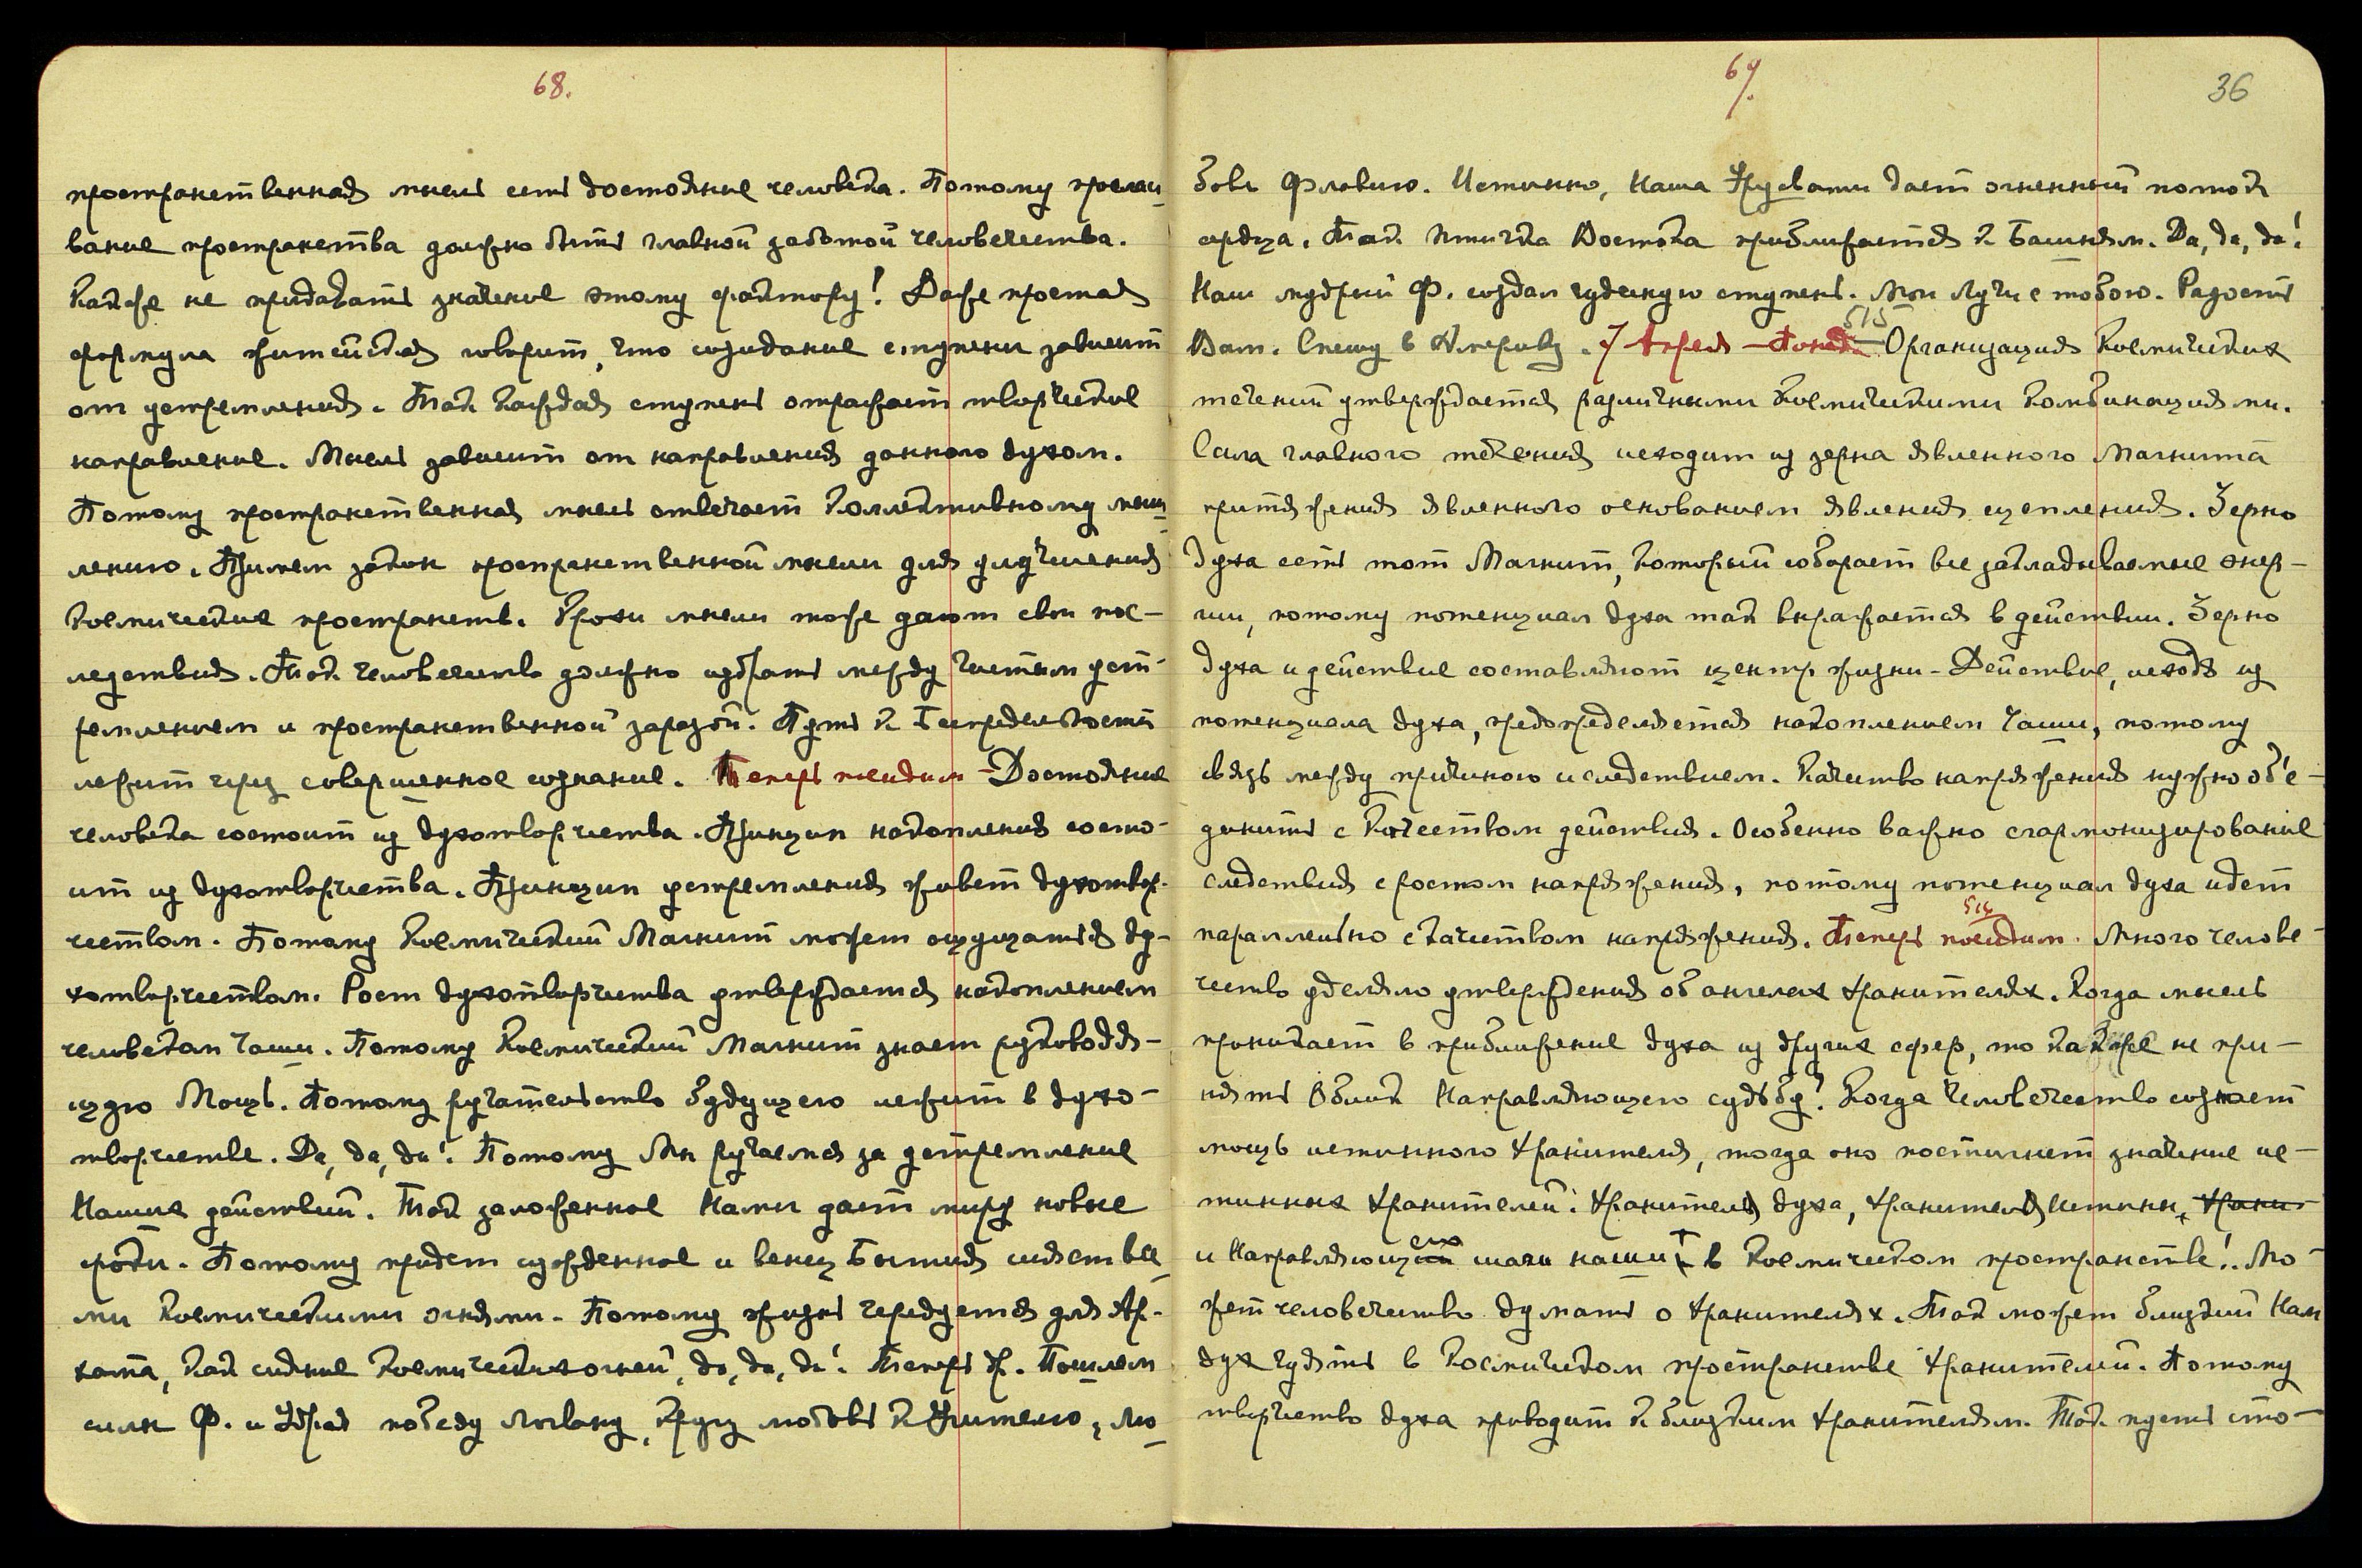 68.
пространственная мысль есть достояние человека. Потому прослаи
вание пространства должно быть главной заботой человечества.
Как же не придавать значение этому фактору! Даже простая
формула житейская говорит, что созидание ступени зависит
от устремления. Так каждая ступень отражает творческое
направление. Мысль зависит от направления данного духом.
Потому пространственная мысль отвечает коллективному мыш
лению. Примем закон пространственной мысли для улучшения
космических пространств. Крохи мысли тоже дают свои пос-
ледствия. Так человечество должно избрать между чистым уст-
ремлением и пространственной заразой. Путь к Беспредельности
лежит через совершенное сознание. Теперь поездим - Достояние
человека состоит из духотворчества. Принцип накопления состо-
ит из духотворчества. Принцип устремления живет духотвор-
чеством. Потому Космический Магнит может ощущаться ду-
хотворчеством. Рост духотворчества утверждается накоплением
человеком чаши. Потому Космический Магнит знает руководя-
щую Мощь. Потому ручательство будущего лежит в духо-
творчестве. Да, да, да! Потому Мы ручаемся за устремление
Наших действий. Так заложенное Нами дает миру новые
сроки. Потому придет сужденное и венец Бытия сияет все
ми космическими огнями. Потому жизнь чередуется для Ар-
хата, как сияние космических огней, да, да, да! Теперь др. Пошлем
силы Ф. и Удрая победу Логвану, Кругу любовь к Учителю, лю
69.
36
бовь Флавию. Истинно, Наша Урусвати дает огненный поток
сердца. Так птичка Востока приближается к Башням. Да, да, да!
Наш мудрый Ф. создал чудесную ступень. Мои Лучи с тобою. Радость
515
Вам. Спешу в Америку. 7 Апреля - Организация Космических
течений утверждается различными космическими комбинациями.
Сила главного течения исходит из зерна явленного Магнита
притяжения явленного основанием явления сцепления. Зерно
духа есть тот Магнит, который собирает все закладываемые энер-
гии, потому потенциал духа так выражается в действии. Зерно
духа и действие составляют центр жизни - Действие, исходя из
потенциала духа, предопределяется накоплением Чаши, потому
связь между причиною и следствием. Качество напряжения нужно объе-
динить с качеством действия. Особенно важно сгармонизирование
следствия с ростом напряжения, потому потенциал духа идет
516
параллельно с качеством напряжения. Теперь поездим. Много челове-
чество уделяло утверждения об ангелах хранителях. Когда мысль
проникает в приближение духа из других сфер, то как же не при-
нять Облик Направляющего судьбу! Когда человечество сознает
мощь истинного Хранителя, тогда оно постигнет значение ис-
тинных Хранителей. Хранителя духа, Хранителя Истины, Храни-
и Направляющего шаги наши в космическом пространстве! Мо-
жет человечество думать о Хранителях. Так может близкий Нам
дух чуять в космическом пространстве Хранителей. Потому
творчество духа приводит к близким Хранителям. Так путь сто-